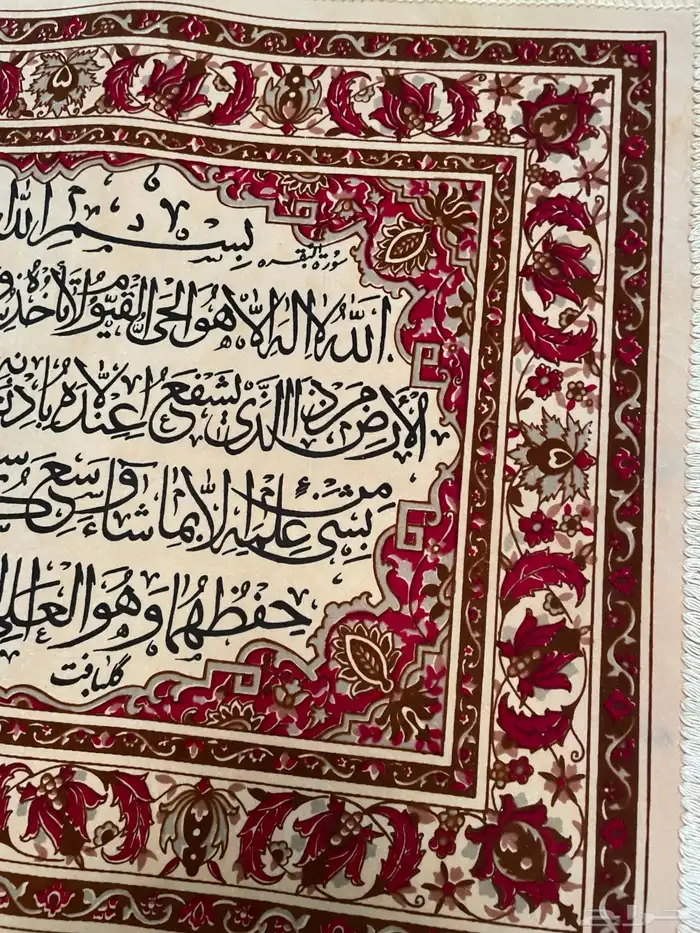 بِسْمِ اللّٰه
سورة البقره
اَللّٰهُ لاٰ اِلٰهَ اِلاّٰ هُوَ الْحَیُّ الْقَیُّومُ لاٰ تَأْخُذُهُ
الْأَرْضِ مَنْ ذَا الَّذی یَشْفَعُ عِنْدَهُ اِلاّٰ بِاِذْنِهِ
بِشَیْءٍ مِنْ عِلْمِهِ اِلاّٰ بِمٰا شٰاءَ وَسِعَ
حِفْظُهُمٰا وَ هُوَ الْعَلِیُّ
گلبافت
حراج